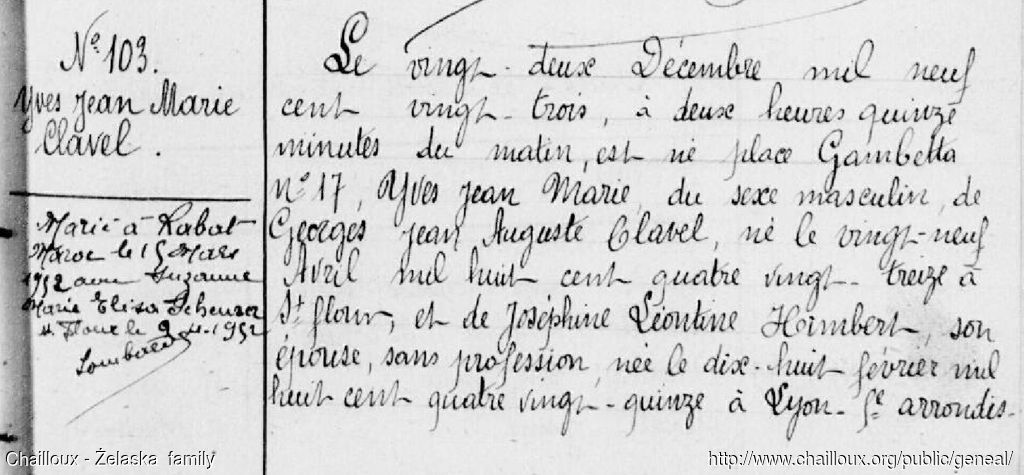 N° 103.
Yves Jean Marie
Clavel.
Marié à Rabat
Maroc le 15 Mars
1952 avec Suzanne
Marie Elisa Scheurer
St Flour le 9 1952
Le vingt-deux Décembre mil neuf
cent vingt-trois, à deux heures quinze
minutes du matin, est né place Gambetta
N° 17, Yves Jean Marie, du sexe masculin, de
Georges Jean Auguste Clavel, né le vingt-neuf
Avril mil huit cent quatre vingt-treize à
St flour, et de Joséphine Léontine Himbert, son
épouse, sans profession, née le dix-huit février mil
huit cent quatre vingt-quinze à Lyon- 5e arrondis-
Chailloux - Želaska family
http://www.chailloux.org/public/geneal/